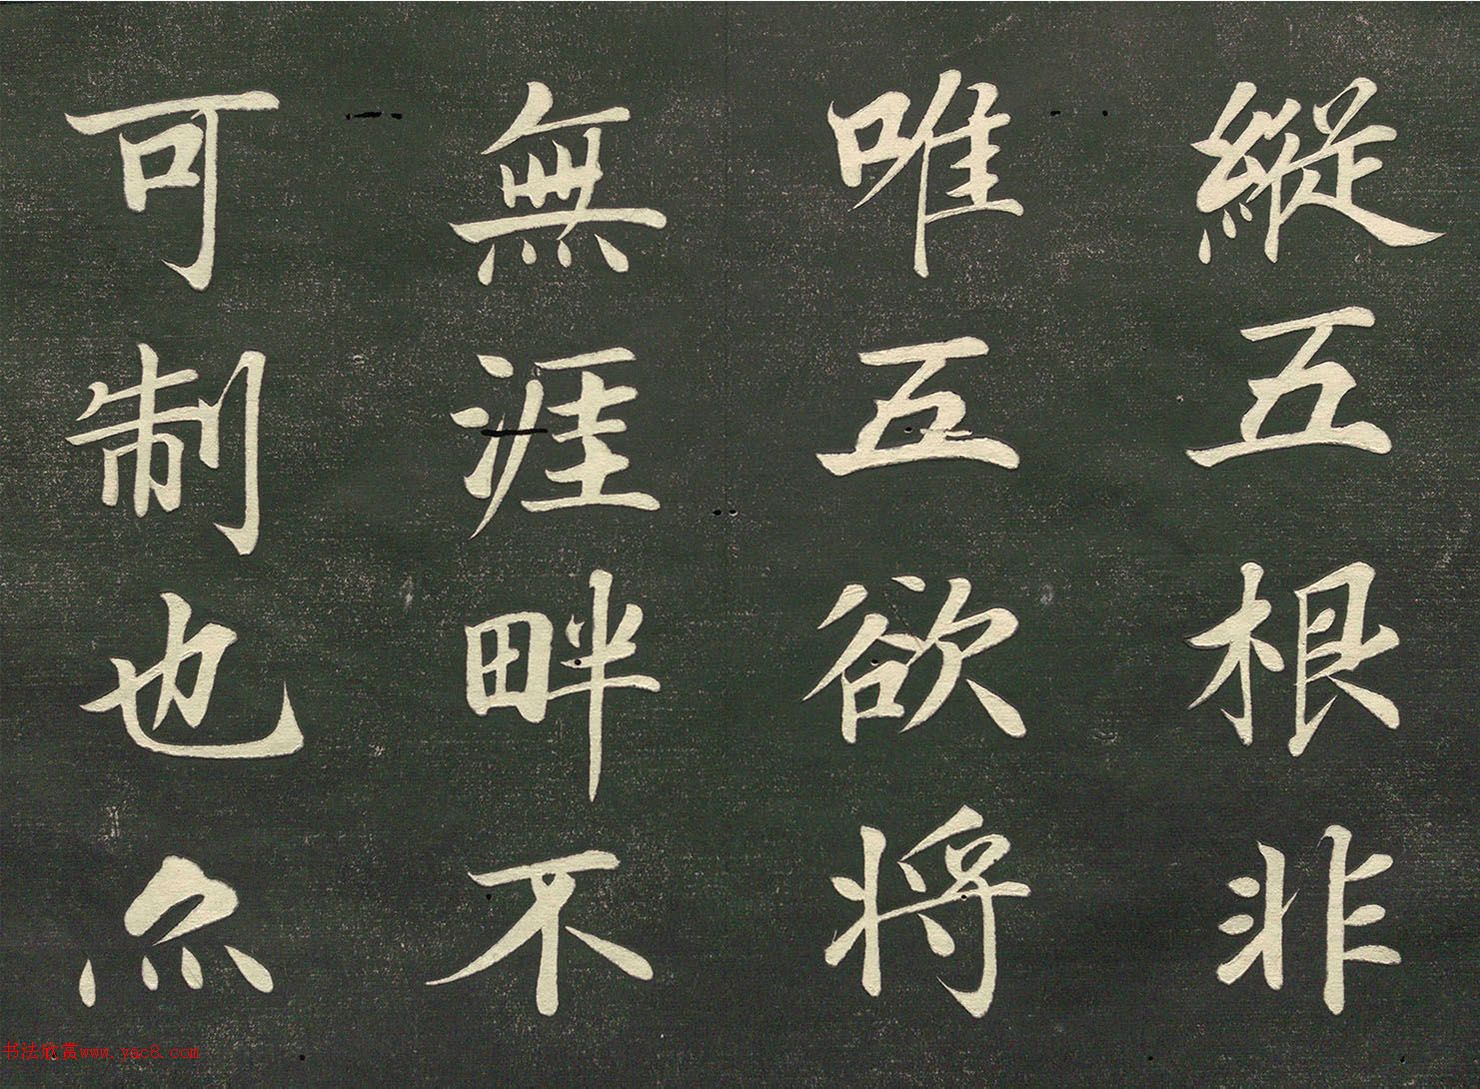 縱五根非
唯五欲将
無涯畔不
可制也尒
书法欣赏www.yac8.com